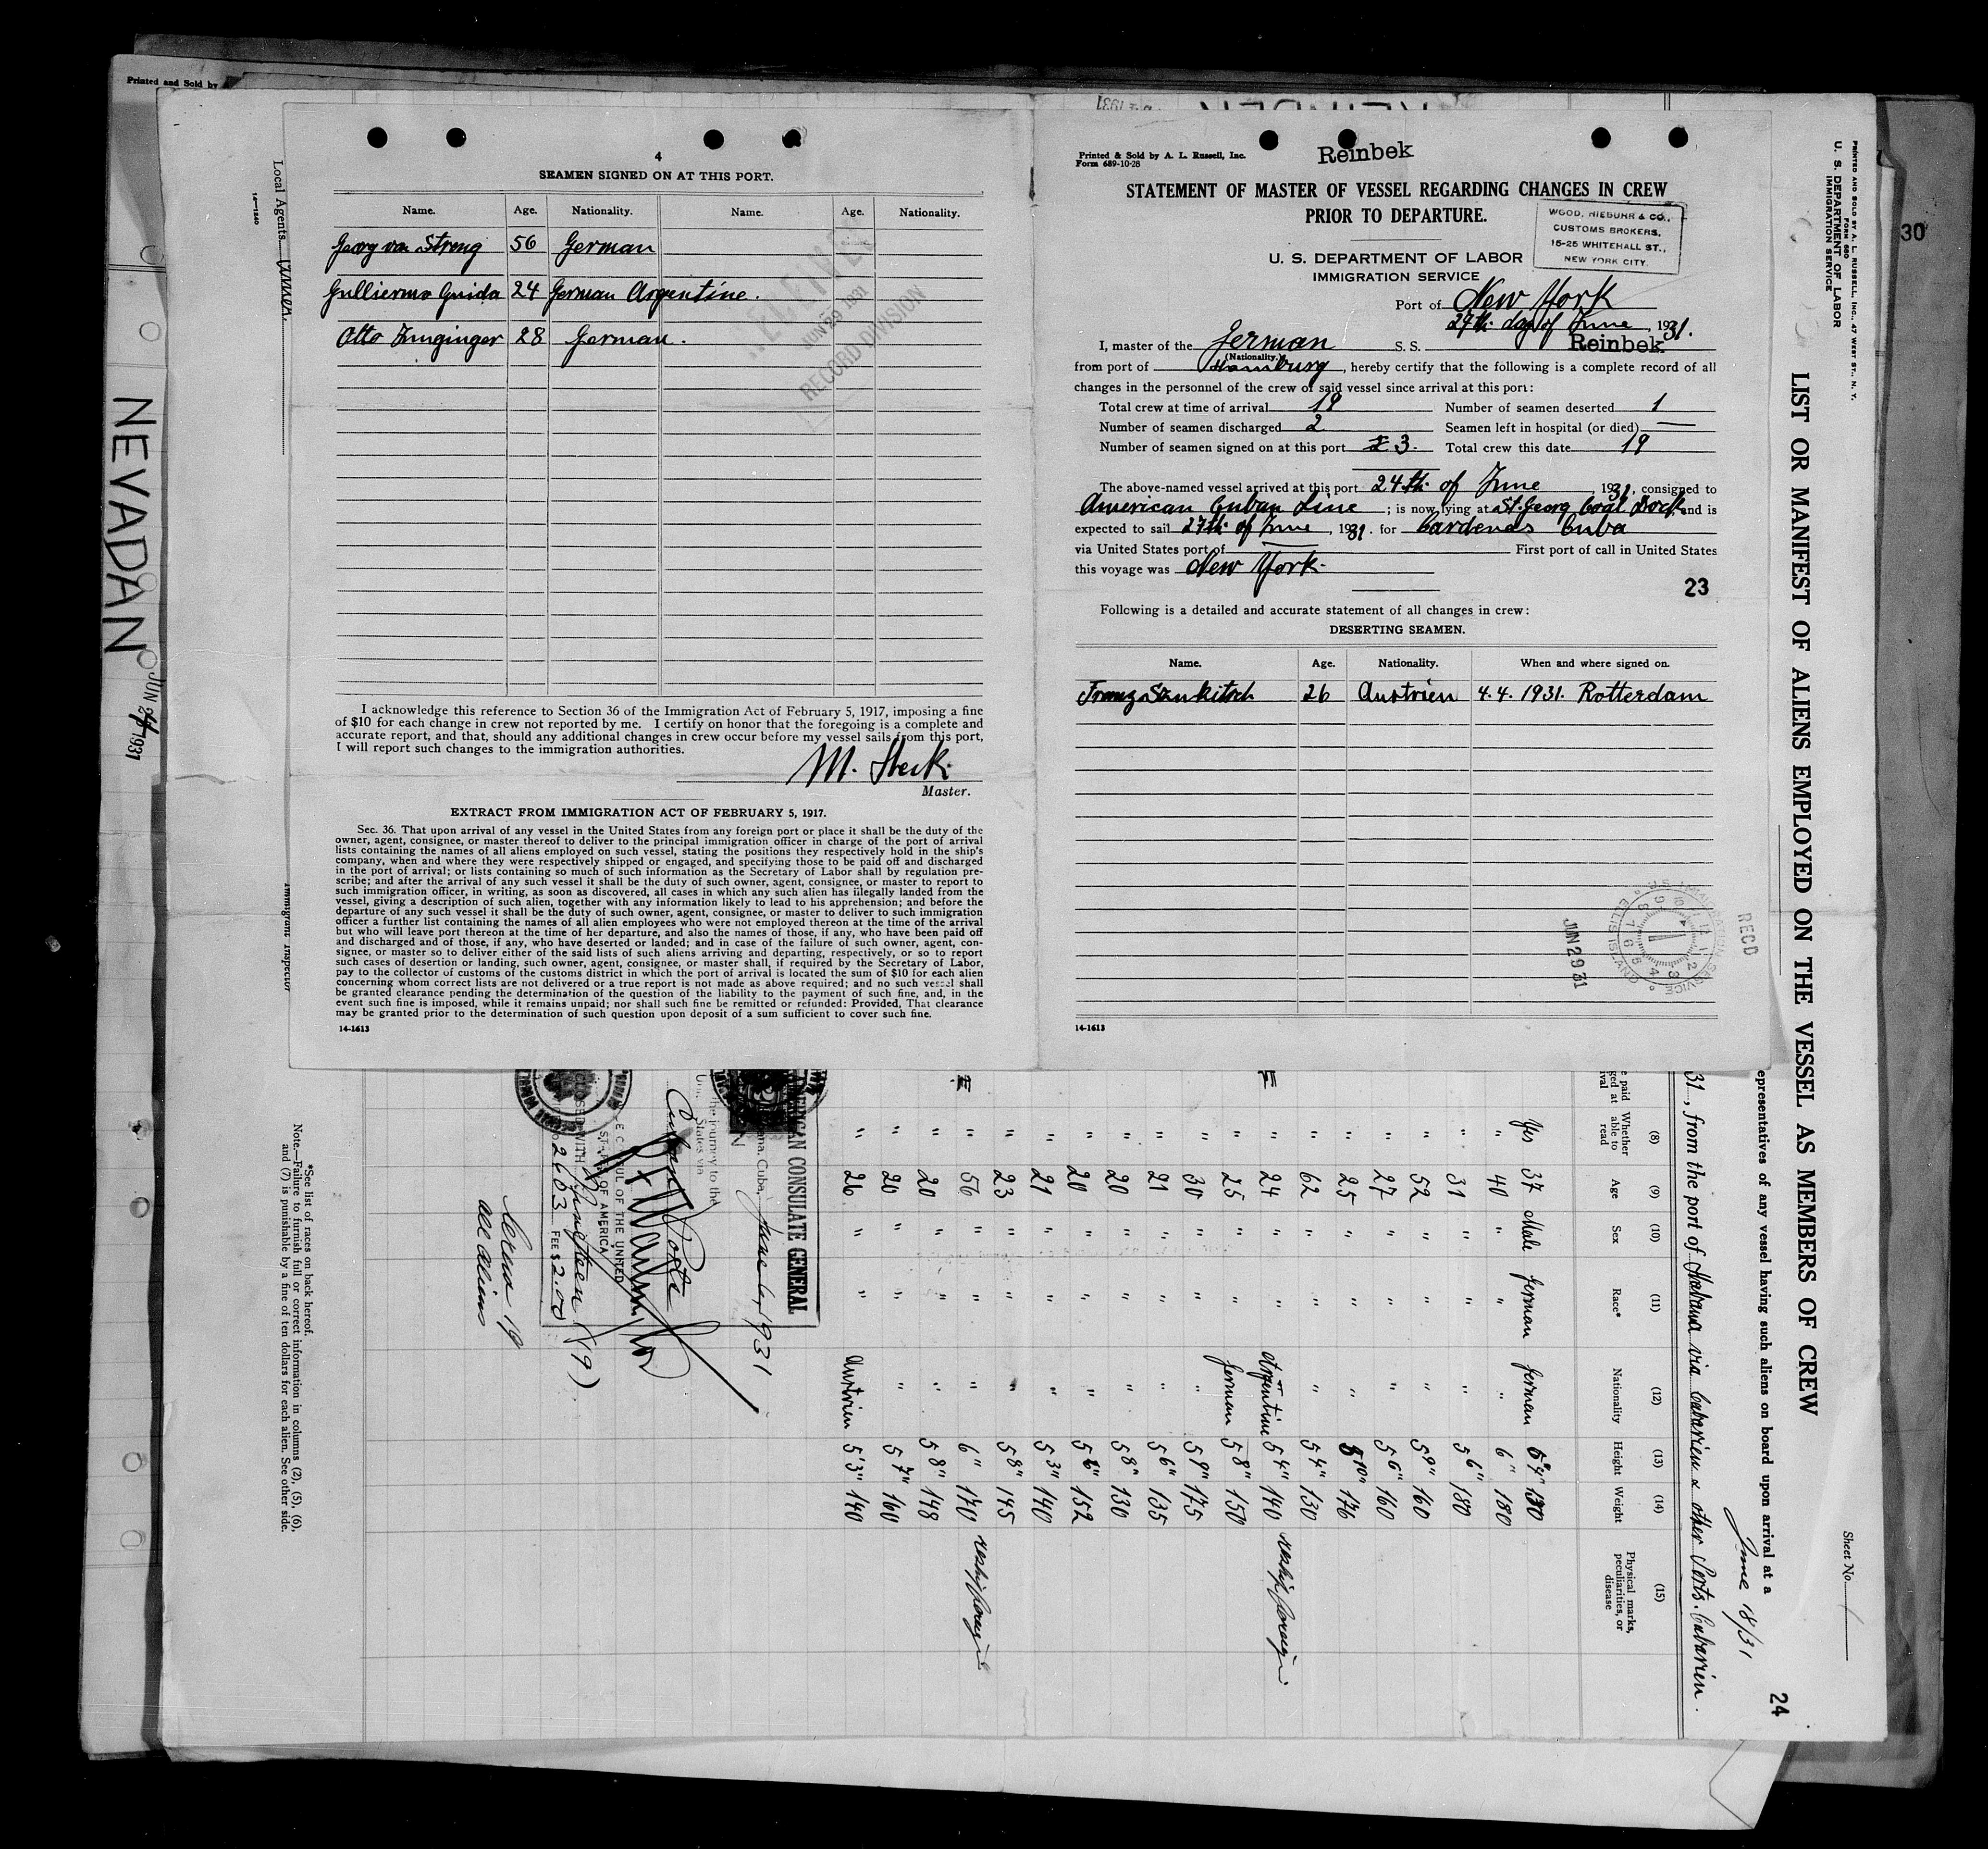 Printed and Sold by
NEVADAN
JUN 24 1931
Local Agents
14—1240
Immigrant Inspector
4
SEAMEN SIGNED ON AT THIS PORT.
Name. Age. Nationality. Name. Age. Nationality.
Georg von Streng 56 German
Gulliermo Guida 24 German Argentine.
Otto Zunginger 28 German.
JUN 29 1931
RECORD DIVISION
I acknowledge this reference to Section 36 of the Immigration Act of February 5, 1917, imposing a fine
of $10 for each change in crew not reported by me. I certify on honor that the foregoing is a complete and
accurate report, and that, should any additional changes in crew occur before my vessel sails from this port,
I will report such changes to the immigration authorities.
M. Sterk
Master.
EXTRACT FROM IMMIGRATION ACT OF FEBRUARY 5, 1917.
Sec. 36. That upon arrival of any vessel in the United States from any foreign port or place it shall be the duty of the
owner, agent, consignee, or master thereof to deliver to the principal immigration officer in charge of the port of arrival
lists containing the names of all aliens employed on such vessel, stating the positions they respectively hold in the ship's
company, when and where they were respectively shipped or engaged, and specifying those to be paid off and discharged
in the port of arrival; or lists containing so much of such information as the Secretary of Labor shall by regulation pre-
scribe; and after the arrival of any such vessel it shall be the duty of such owner, agent, consignee, or master to report to
such immigration officer, in writing, as soon as discovered, all cases in which any such alien has illegally landed from the
vessel, giving a description of such alien, together with any information likely to lead to his apprehension; and before the
departure of any such vessel it shall be the duty of such owner, agent, consignee, or master to deliver to such immigration
officer a further list containing the names of all alien employees who were not employed thereon at the time of the arrival
but who will leave port thereon at the time of her departure, and also the names of those, if any, who have been paid off
and discharged and of those, if any, who have deserted or landed; and in case of the failure of such owner, agent, con-
signee, or master so to deliver either of the said lists of such aliens arriving and departing, respectively, or so to report
such cases of desertion or landing, such owner, agent, consignee, or master shall, if required by the Secretary of Labor,
pay to the collector of customs of the customs district in which the port of arrival is located the sum of $10 for each alien
concerning whom correct lists are not delivered or a true report is not made as above required; and no such vessel shall
be granted clearance pending the determination of the question of the liability to the payment of such fine, and, in the
event such fine is imposed, while it remains unpaid; nor shall such fine be remitted or refunded: Provided, That clearance
may be granted prior to the determination of such question upon deposit of a sum sufficient to cover such fine.
14-1613
Printed & Sold by A. L. Russell, Inc.
Form 689-10-28
Reinbek
STATEMENT OF MASTER OF VESSEL REGARDING CHANGES IN CREW
PRIOR TO DEPARTURE.
WOOD, NIEBUHR & CO.,
CUSTOMS BROKERS,
15-25 WHITEHALL ST.,
NEW YORK CITY.
U. S. DEPARTMENT OF LABOR
IMMIGRATION SERVICE
Port of New York
27th day of June, 1931.
I, master of the German S. S. Reinbek
(Nationality.)
from port of Hamburg, hereby certify that the following is a complete record of all
changes in the personnel of the crew of said vessel since arrival at this port:
Total crew at time of arrival 19 Number of seamen deserted 1
Number of seamen discharged 2 Seamen left in hospital (or died) —
Number of seamen signed on at this port 3. Total crew this date 19
The above-named vessel arrived at this port 24th of June, 1931, consigned to
American Cuban Line; is now lying at St. Georg Coal Dock, and is
expected to sail 27th of June, 1931. for Cardenas Cuba
via United States port of — First port of call in United States
this voyage was New York.
23
Following is a detailed and accurate statement of all changes in crew:
DESERTING SEAMEN.
Name. Age. Nationality. When and where signed on.
Franz Szukitsch 26 Austrien 4.4. 1931. Rotterdam
U. S. IMMIGRATION SERVICE
ELLIS ISLAND
JUN 29 31
REC'D
14-1613
30
PRINTED AND SOLD BY A. L. RUSSELL, INC., 47 WEST ST., N. Y.
FORM 680
U. S. DEPARTMENT OF LABOR
IMMIGRATION SERVICE
LIST OR MANIFEST OF ALIENS EMPLOYED ON THE VESSEL AS MEMBERS OF CREW
Sheet No. 1
epresentatives of any vessel having such aliens on board upon arrival at a
June 18/31
24
31, from the port of Habana via Caibarien & other Ports. Caibarien.
(8) (9) (10) (11) (12) (13) (14) (15)
Whether able to read Age Sex Race* Nationality Height Weight Physical marks, peculiarities, or disease
Yes 37 Male German German 5'4" 130
" 40 " " " 6" 180
" 31 " " " 5 6" 180
" 52 " " " 5 9" 160
" 27 " " " 5 6" 160
" 25 " " " 5 10" 176
" 62 " " " 5 4" 130
" 24 " " Argentine 5 4" 140 reship foreign
" 25 " " German 5 8" 150
" 30 " " " 5 9" 175
" 21 " " " 5 6" 135
" 20 " " " 5 8" 130
" 20 " " " 5 6" 152
" 21 " " " 5 3" 140
" 23 " " " 5 8" 145
" 56 " " " 6" 170 reship foreign
" 20 " " " 5 8" 148
" 20 " " " 5 7" 160
" 26 " " Austrien 5'3" 140
AMERICAN CONSULATE GENERAL
Cuba, June 6, 1931
the journey to the
States via
Cuban Ports
CONSUL OF THE UNITED
STATES OF AMERICA
CLOSED WITH Nineteen (19)
No. 2603 FEE $2.00
Crew 19
all aliens
*See list of races on back hereof.
Note.—Failure to furnish full or correct information in columns (2), (5), (6),
and (7) is punishable by a fine of ten dollars for each alien. See other side.